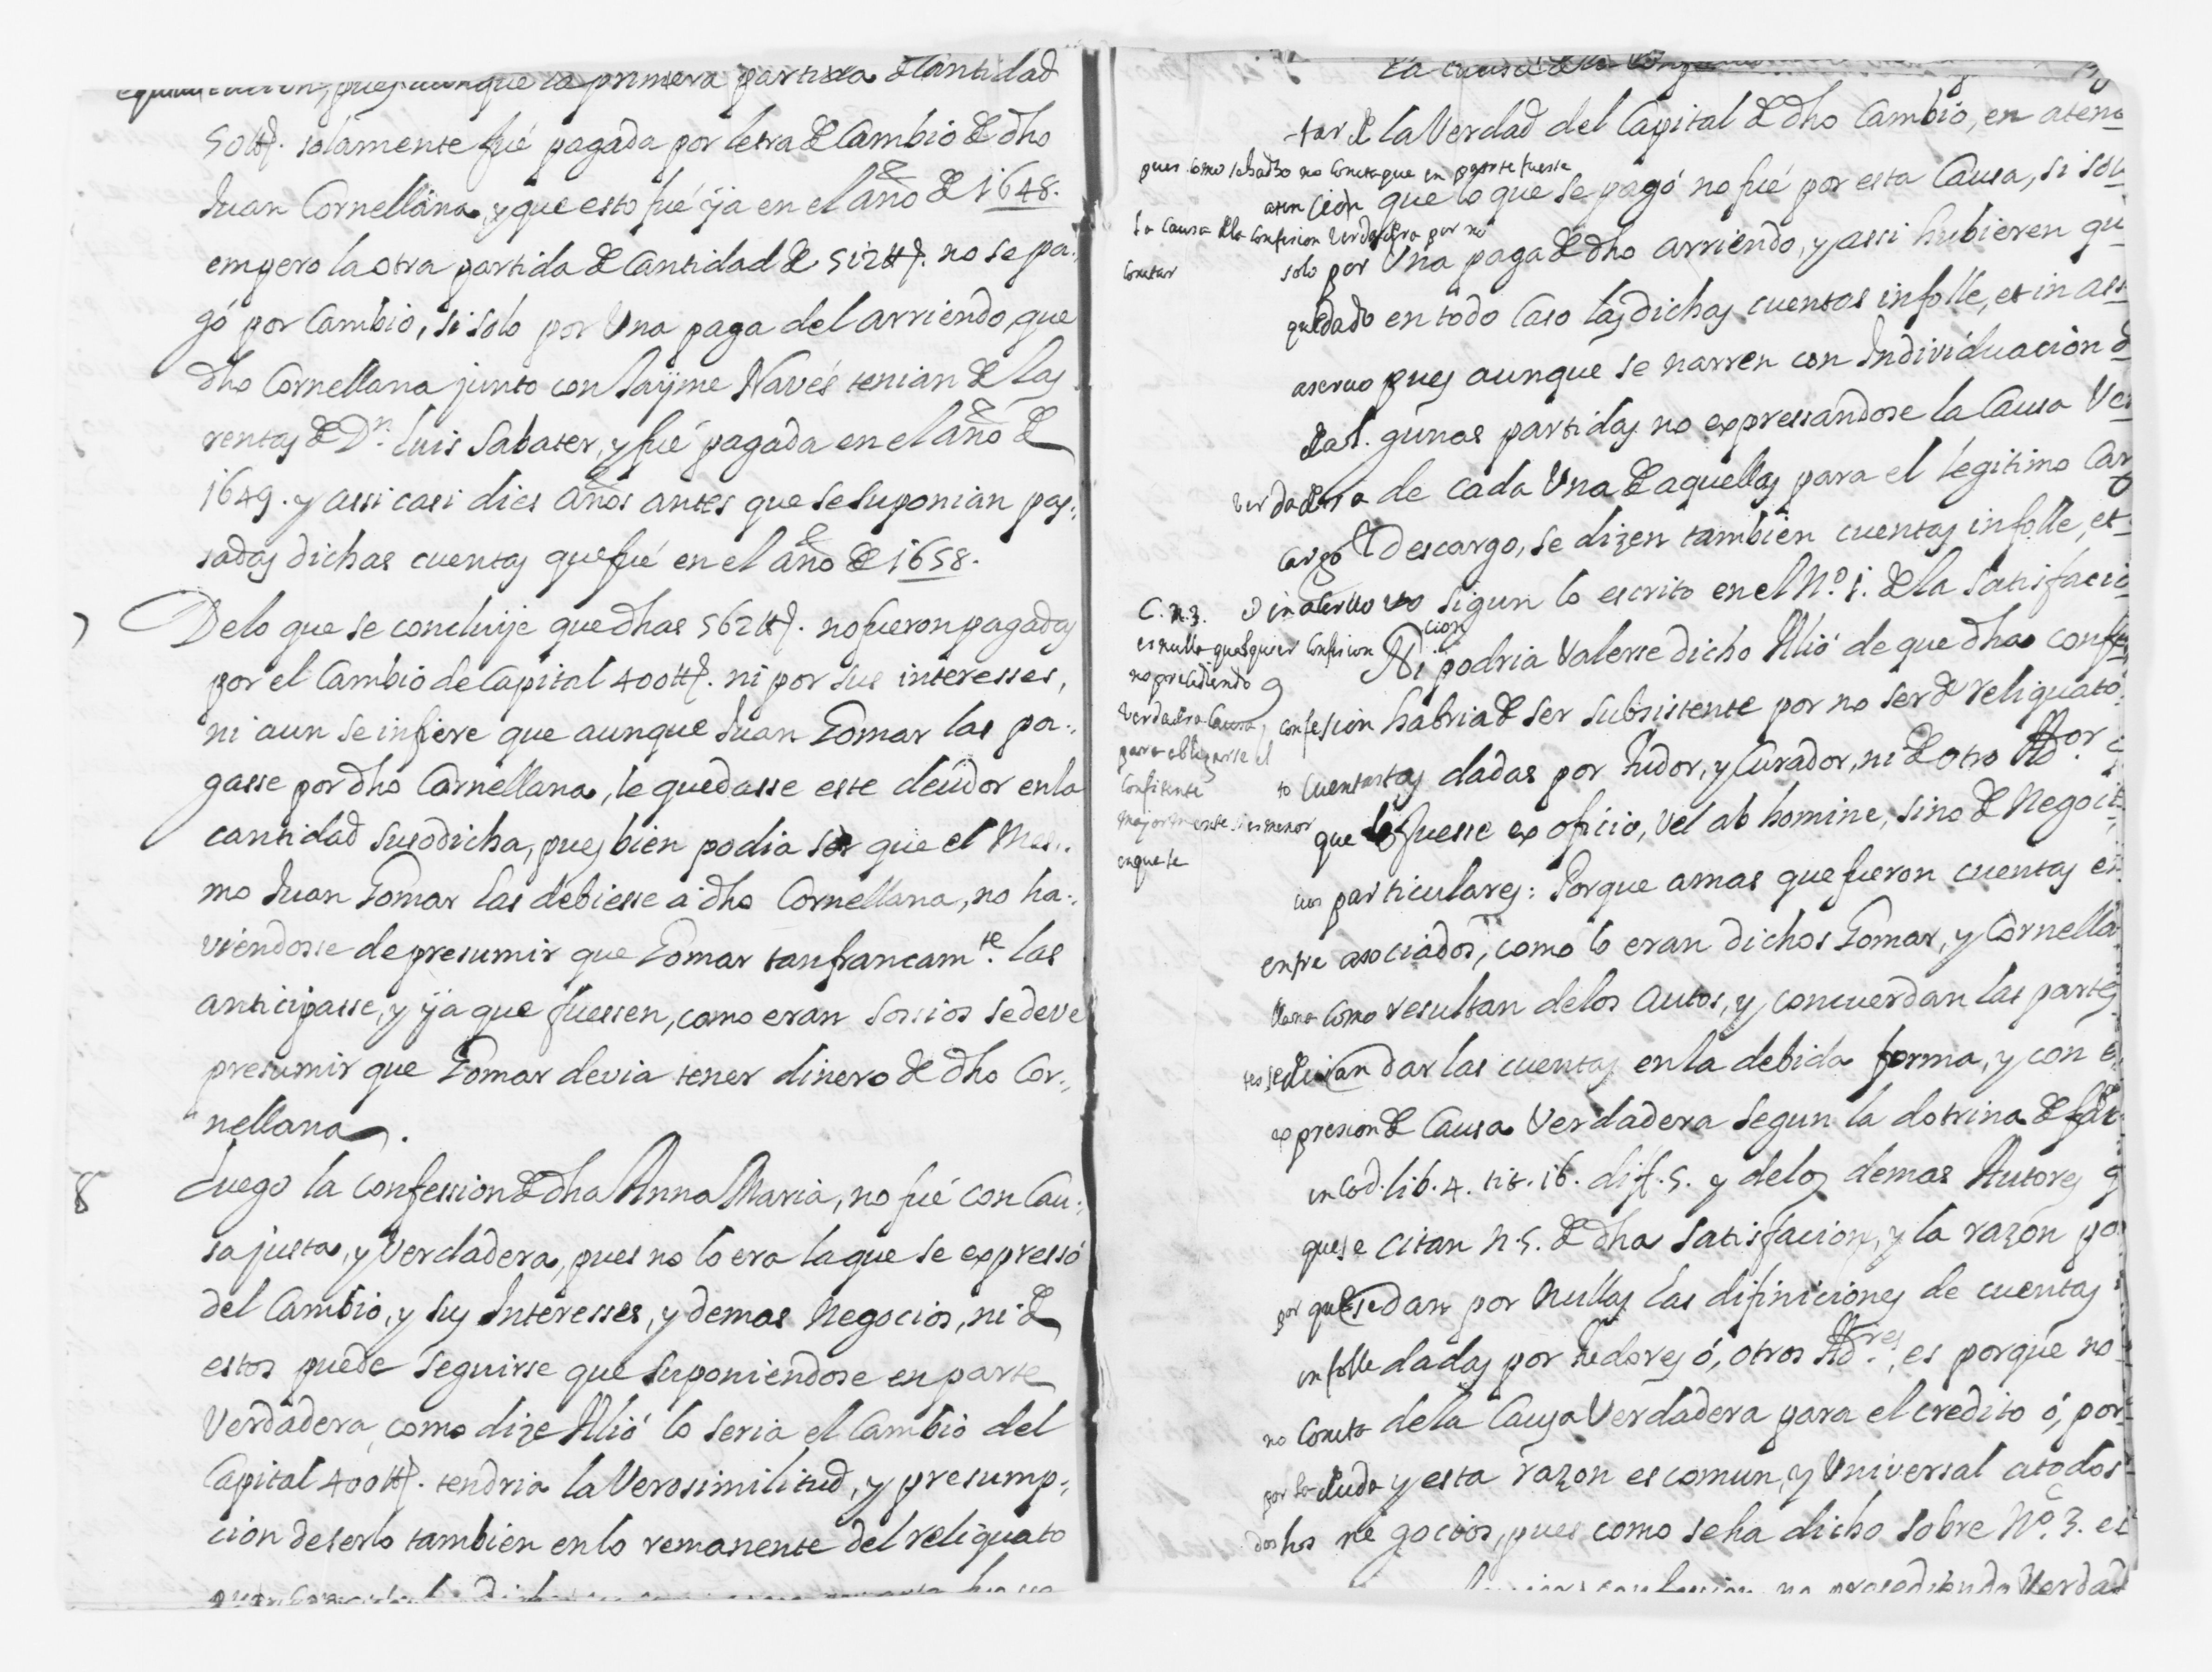 pues aunque la primera partida d Cantidad
50 ₶. solamente fué pagada por letra de Cambio de dho
Juan Cornellana, y que esto fué ÿa en el año de 1648.
empero la otra partida de Cantidad de 512 ₶. no se pa-
gó por Cambio, si solo por Una paga del arriendo que
dho Cornellana junto con Jaÿme Navés tenian de las
rentas de Dn. Luis Sabater, y fué pagada en el año de
1649. y assi casi dies años antes que se suponian pas-
sadas dichas cuentas que fué en el año de 1658.
7 De lo que se concluÿe que dhas 562 ₶. no fueron pagadas
por el Cambio de Capital 400 ₶. ni por sus interesses,
ni aun se infiere que aunque Juan Gomar las pa-
gasse por dho Cornellana, le quedasse este deudor en la
cantidad susodicha, pues bien podia ser que el Mes-
mo Juan Gomar las debiesse a dho Cornellana, no ha-
viendosse de presumir que Gomar tan francamte. las
anticipasse, y ÿa que fuessen, como eran sossios se deve
presumir que Gomar devia tener dinero de dho Cor-
nellana.
8 Luego la confession de dha Anna Maria, no fué con Cau-
sa justa, y Verdadera, pues no lo era la que se expressó
del Cambio, y sus Interesses, y demas Negocios, ni de
estos puede seguirse que suponiendose en parte
Verdadera, como dize Allió lo seria el Cambio del
Capital 400 ₶. tendria la Verosimilitud, y presump-
cion de serlo tambien en lo remanente del reliquato
tar de la Verdad del Capital de dho Cambio, en aten
pues como se ha dho no consta que en parte fuesse
la causa de la confesion verdadera por no
constar
atencion que lo que se pagó no fué por esta Causa, si sol
solo por Una paga de dho arriendo, y assi hubieren qu
quedado en todo Caso las dichas cuentas in folle, et in ass
aservo pues aunque se narren con Individuacion d
de al. gunas partidas no expressandose la Causa Ver
verdadera de cada Una de aquellas para el legitimo Car
cargo descargo, se dizen tambien cuentas in folle, et
in aservo sigun lo escrito en el No. 1. de la satisfacio
cion
C. n. 3.
es nulla qualquier confesion
no precediendo
verdadera causa,
para obligarse el
confitente
majormente si es menor
en que se
Ni podria Valerse dicho Allió de que dha confes
confesion habria de ser subsistente por no ser de reliquato
to cuentas dadas por Tudor, y Curador, ni de otro Ador.
que lo fuesse ex oficio, vel ab homine, sino de Negoci
cios particulares: Porque amas que fueron cuentas en
entre asociados, como lo eran dichos Gomar, y Cornella
llana como resultan de los Autos, y concuerdan las partes
tes se devian dar las cuentas en la debida forma, y con e
expresion de Causa Verdadera segun la dotrina de
in Cod. lib. 4. tit. 16. dif. 5. y de los demas Autores q
que se citan n. 5. de dha Satisfacion, y la razon po
por que se dan por Nullas las difiniciones de cuentas
in folle dadas por Tudores ó, otros Adres., es porque no
no consta de la Causa Verdadera para el credito ó, por
por la duda y esta razon es comun, y Universal a todos
dos los negocios, pues como se ha dicho sobre No. 3. es
confession no precediendo Verdad